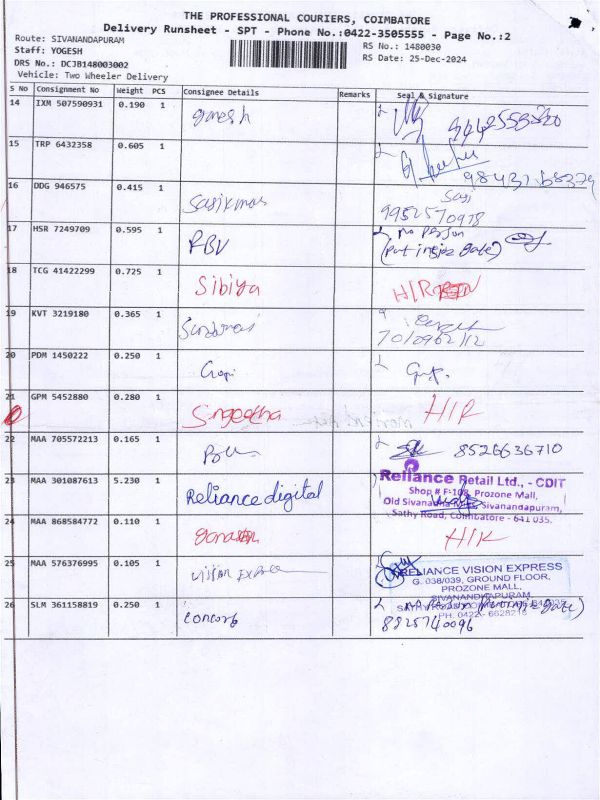 THE PROFESSIONAL COURIERS, COIMBATORE
Delivery Runsheet - SPT - Phone No.:0422-3505555 - Page No.:2
Route: SIVANANDAPURAM
Staff: YOGESH
DRS No.: DCJB148003002
Vehicle: Two Wheeler Delivery
RS No.: 1480030
RS Date: 25-Dec-2024
S No Consignment No Weight PCS Consignee Details Remarks Seal & Signature
14 IXM 507590931 0.190 1 ganesh
15 TRP 6432358 0.605 1
16 DDG 946575 0.415 1 Sasikumar Sasi
9952570978
17 HSR 7249709 0.595 1 RBV no person
(put inside gate)
18 TCG 41422299 0.725 1 Sibiya H/R
19 KVT 3219180 0.365 1
20 PDM 1450222 0.250 1 Gopi
21 GPM 5452880 0.280 1 Sngeetha H/R
22 MAA 705572213 0.165 1 8526636710
23 MAA 301087613 5.230 1 Reliance digital
Reliance Retail Ltd., - CDIT
Shop # F-108, Prozone Mall,
Old Sivananda Mills, Sivanandapuram,
Sathy Road, Coimbatore - 641 035.
24 MAA 868584772 0.110 1 H/R
25 MAA 576376995 0.105 1 Vision Express
RELIANCE VISION EXPRESS
G. 038/039, GROUND FLOOR,
PROZONE MALL,
SIVANANDAPURAM,
PH: 0422- 6628216
26 SLM 361158819 0.250 1 Concorb
8825740096